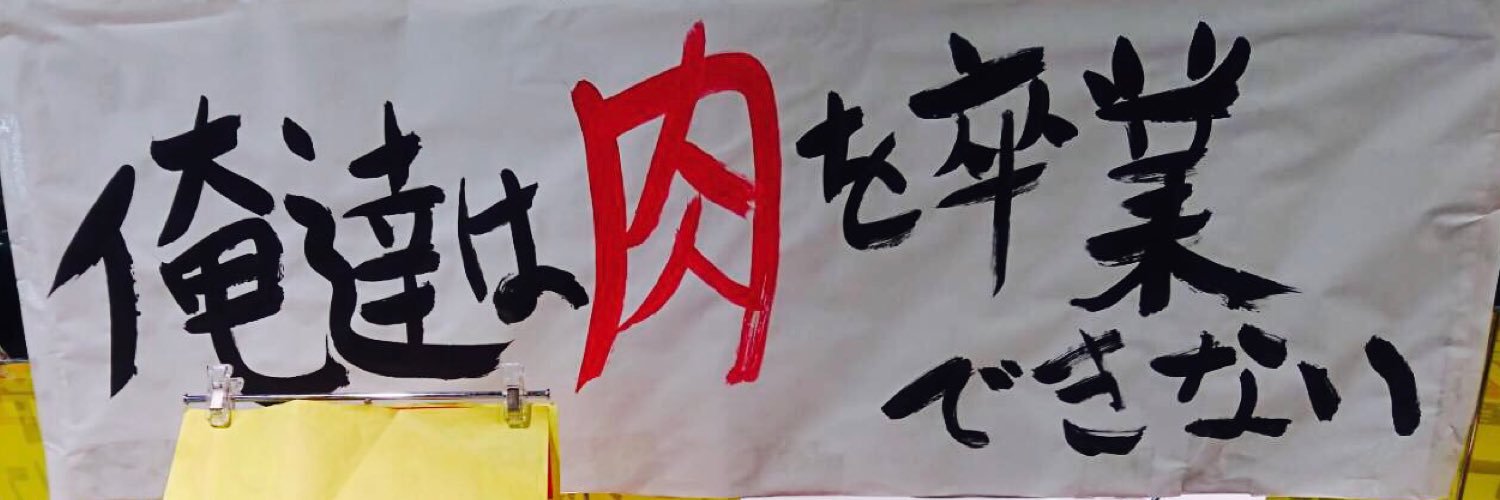 俺達は肉を卒業
できない